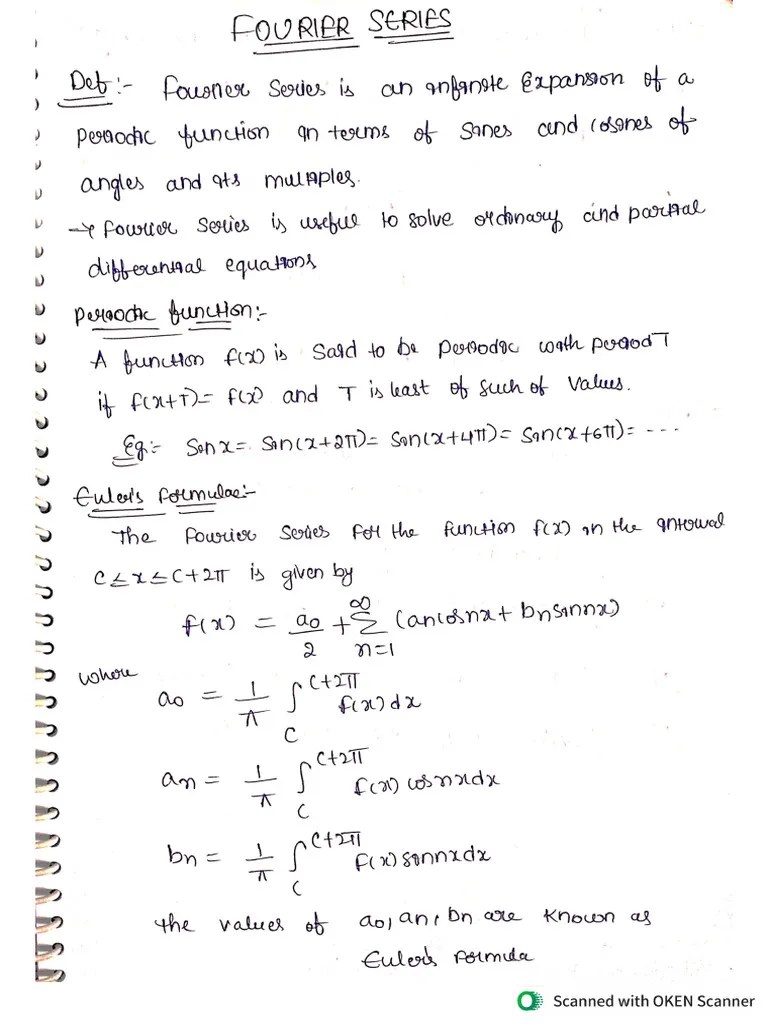 FOURIER SERIES
Def :- Fourier Series is an infinite Expansion of a
periodic function in terms of Sines and cosines of
angles and its multiples.
→ Fourier Series is useful to solve ordinary and partial
differential equations
Periodic function:-
A function f(x) is Said to be periodic with period T
if f(x+T)= f(x) and T is least of Such of Values.
Eg:- Sin x = Sin(x+2π)= Sin(x+4π)= Sin(x+6π)= ---
Euler's Formulae:-
The Fourier Series for the function f(x) in the interval
C ≤ x ≤ C+2π is given by
f(x) = a0/2 + ∑_{n=1}^{∞} (an cosnx + bn sinnx)
where
a0 = 1/π ∫_C^{C+2π} f(x) dx
an = 1/π ∫_C^{C+2π} f(x) cosnx dx
bn = 1/π ∫_C^{C+2π} f(x) sinnx dx
the values of a0, an, bn are known as
Euler's Formula
Scanned with OKEN Scanner